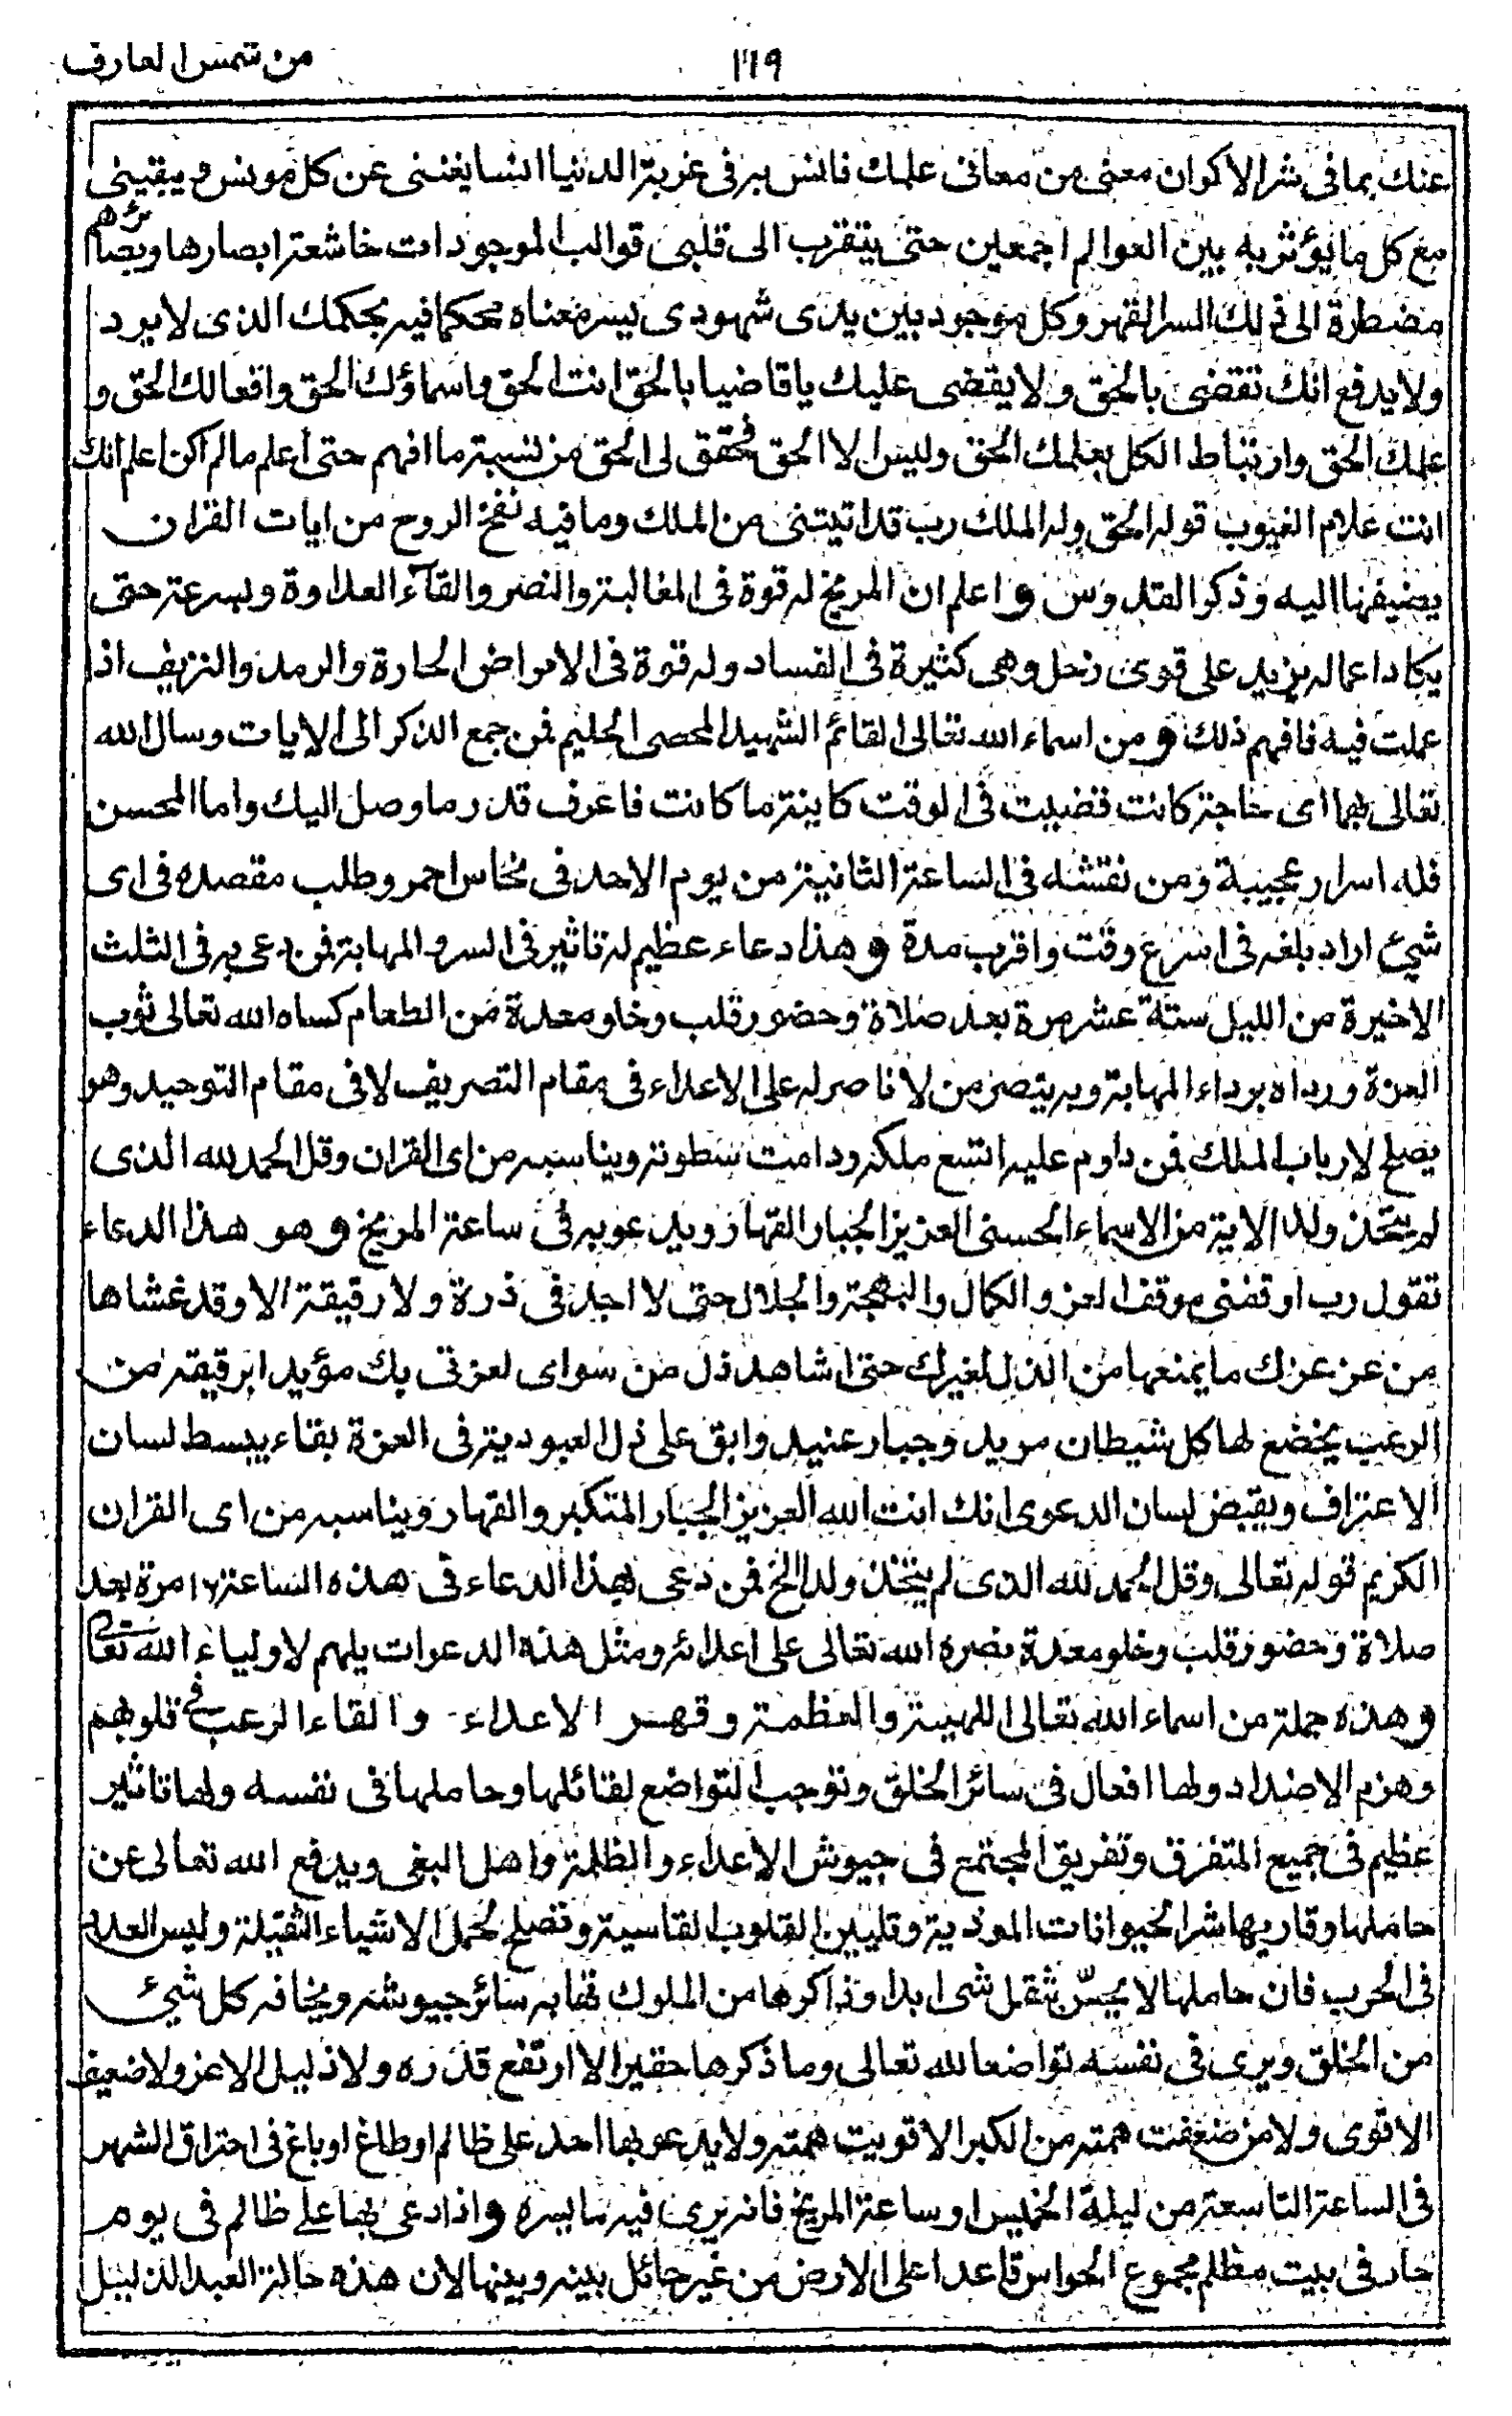 من شمس المعارف
١١٩
عنك بما فى شر الاكوان معنى من معانى علمك فانس به فى غربة الدنيا انسا يغنينى عن كل مونس ويبقينى
مع كل ما يؤثر به بين العوالم اجمعين حتى يتقرب الى قلبى قوالب الموجودات خاشعة ابصارها وبصائرهم
مضطرة الى ذلك السر القهر وكل موجود بين يدى شهودى يسر معناه محكما فيه بحكمك الذى لا يرد
ولا يدفع انك تقضى بالحق ولا يقضى عليك يا قاضيا بالحق انت الحق واسماؤك الحق وافعالك الحق و
علمك الحق وارتباط الكل بعلمك الحق وليس الا الحق فحقق لى الحق من نسبة ما افهم حتى اعلم ما لم اكن اعلم انك
انت علام الغيوب قوله الحق وله الملك رب قد اتيتنى من الملك وما فيه نفخ الروح من ايات القران
يضيفها اليه وذكر القدوس واعلم ان المريخ له قوة فى المغالبة والنصر والقآء العداوة وبسرعة حتى
يكاد اعماله يزيد على قوى زحل وهى كثيرة فى الفساد وله قوة فى الامراض الحارة والرمد والنزيف اذا
عملت فيه فافهم ذلك ومن اسماء الله تعالى القائم الشهيد المحصى الحليم فمن جمع الذكر الى الايات وسال الله
تعالى بهما اى حاجة كانت قضيت فى الوقت كاينة ما كانت فاعرف قدر ما وصل اليك واما المحسن
فله اسرار عجيبة ومن نقشه فى الساعة الثانية من يوم الاحد فى نحاس احمر وطلب مقصده فى اى
شيئ اراد بلغه فى اسرع وقت واقرب مدة وهذا دعاء عظيم له تاثير فى السر والمهابة فمن دعى به فى الثلث
الاخيرة من الليل ستة عشر مرة بعد صلاة وحضور قلب وخلو معدة من الطعام كساه الله تعالى ثوب
العزة ورداه برداء المهابة وبه ينتصر من لا ناصر له على الاعداء فى مقام التصريف لا فى مقام التوحيد وهو
يصلح لارباب الملك فمن داوم عليه اتسع ملكه ودامت سطوته ويناسبه من اى القران وقل الحمد لله الذى
لم يتخذ ولدا الاية من الاسماء الحسنى العزيز الجبار القهار ويدعو به فى ساعة المريخ وهو هذا الدعاء
تقول رب اوقفنى موقف العز والكمال والبهجة والجلال حتى لا اجد فى ذرة ولا رقيقة الا وقد غشاها
من عز عزك ما يمنعها من الذل لغيرك حتى اشاهد ذل من سواى لعزتى بك مؤيدا برقيقة من
الرعب يخضع لها كل شيطان مريد وجبار عنيد وابق على ذل العبودية فى العزة بقاء يبسط لسان
الاعتراف ويقبض لسان الدعوى انك انت الله العزيز الجبار المتكبر والقهار ويناسبه من اى القران
الكريم قوله تعالى وقل الحمد لله الذى لم يتخذ ولدا الخ فمن دعى بهذا الدعاء فى هذه الساعة ١٦ مرة بعد
صلاة وحضور قلب وخلو معدة نصره الله تعالى على اعدائه ومثل هذه الدعوات يلهم لاولياء الله تعالى
وهذه جملة من اسماء الله تعالى للهيبة والعظمة وقهر الاعداء والقاء الرعب فى قلوبهم
وهزم الاضداد ولها افعال فى سائر الخلق وتوجب التواضع لقائلها وحاملها فى نفسه ولها تاثير
عظيم فى جميع المتفرق وتفريق المجتمع فى جيوش الاعداء والظلمة واهل البغى ويدفع الله تعالى عن
حاملها وقاريها شر الحيوانات الموذية وتليين القلوب القاسية وتصلح لحمل الاشياء الثقيلة ولبس العدة
فى الحرب فان حاملها لا يحسّ بثقل شى ابدا وذاكرها من الملوك تهابه سائر جيوشه ويخافه كل شيئ
من الخلق ويرى فى نفسه تواضعا لله تعالى وما ذكرها حقير الا ارتفع قدره ولا ذليل الا عز ولا ضعيف
الا قوى ولا من ضعفت همته من الكبر الا قويت همته ولا يدعو بها احد على ظالم او طاغ او باغ فى احتراق الشهر
فى الساعة التاسعة من ليلة الخميس او ساعة المريخ فانه يرى فيه ما يسره واذا دعى بها على ظالم فى يوم
حار فى بيت مظلم مجموع الحواس قاعدا على الارض من غير حائل بينه وبينها لان هذه حالة العبد الذليل